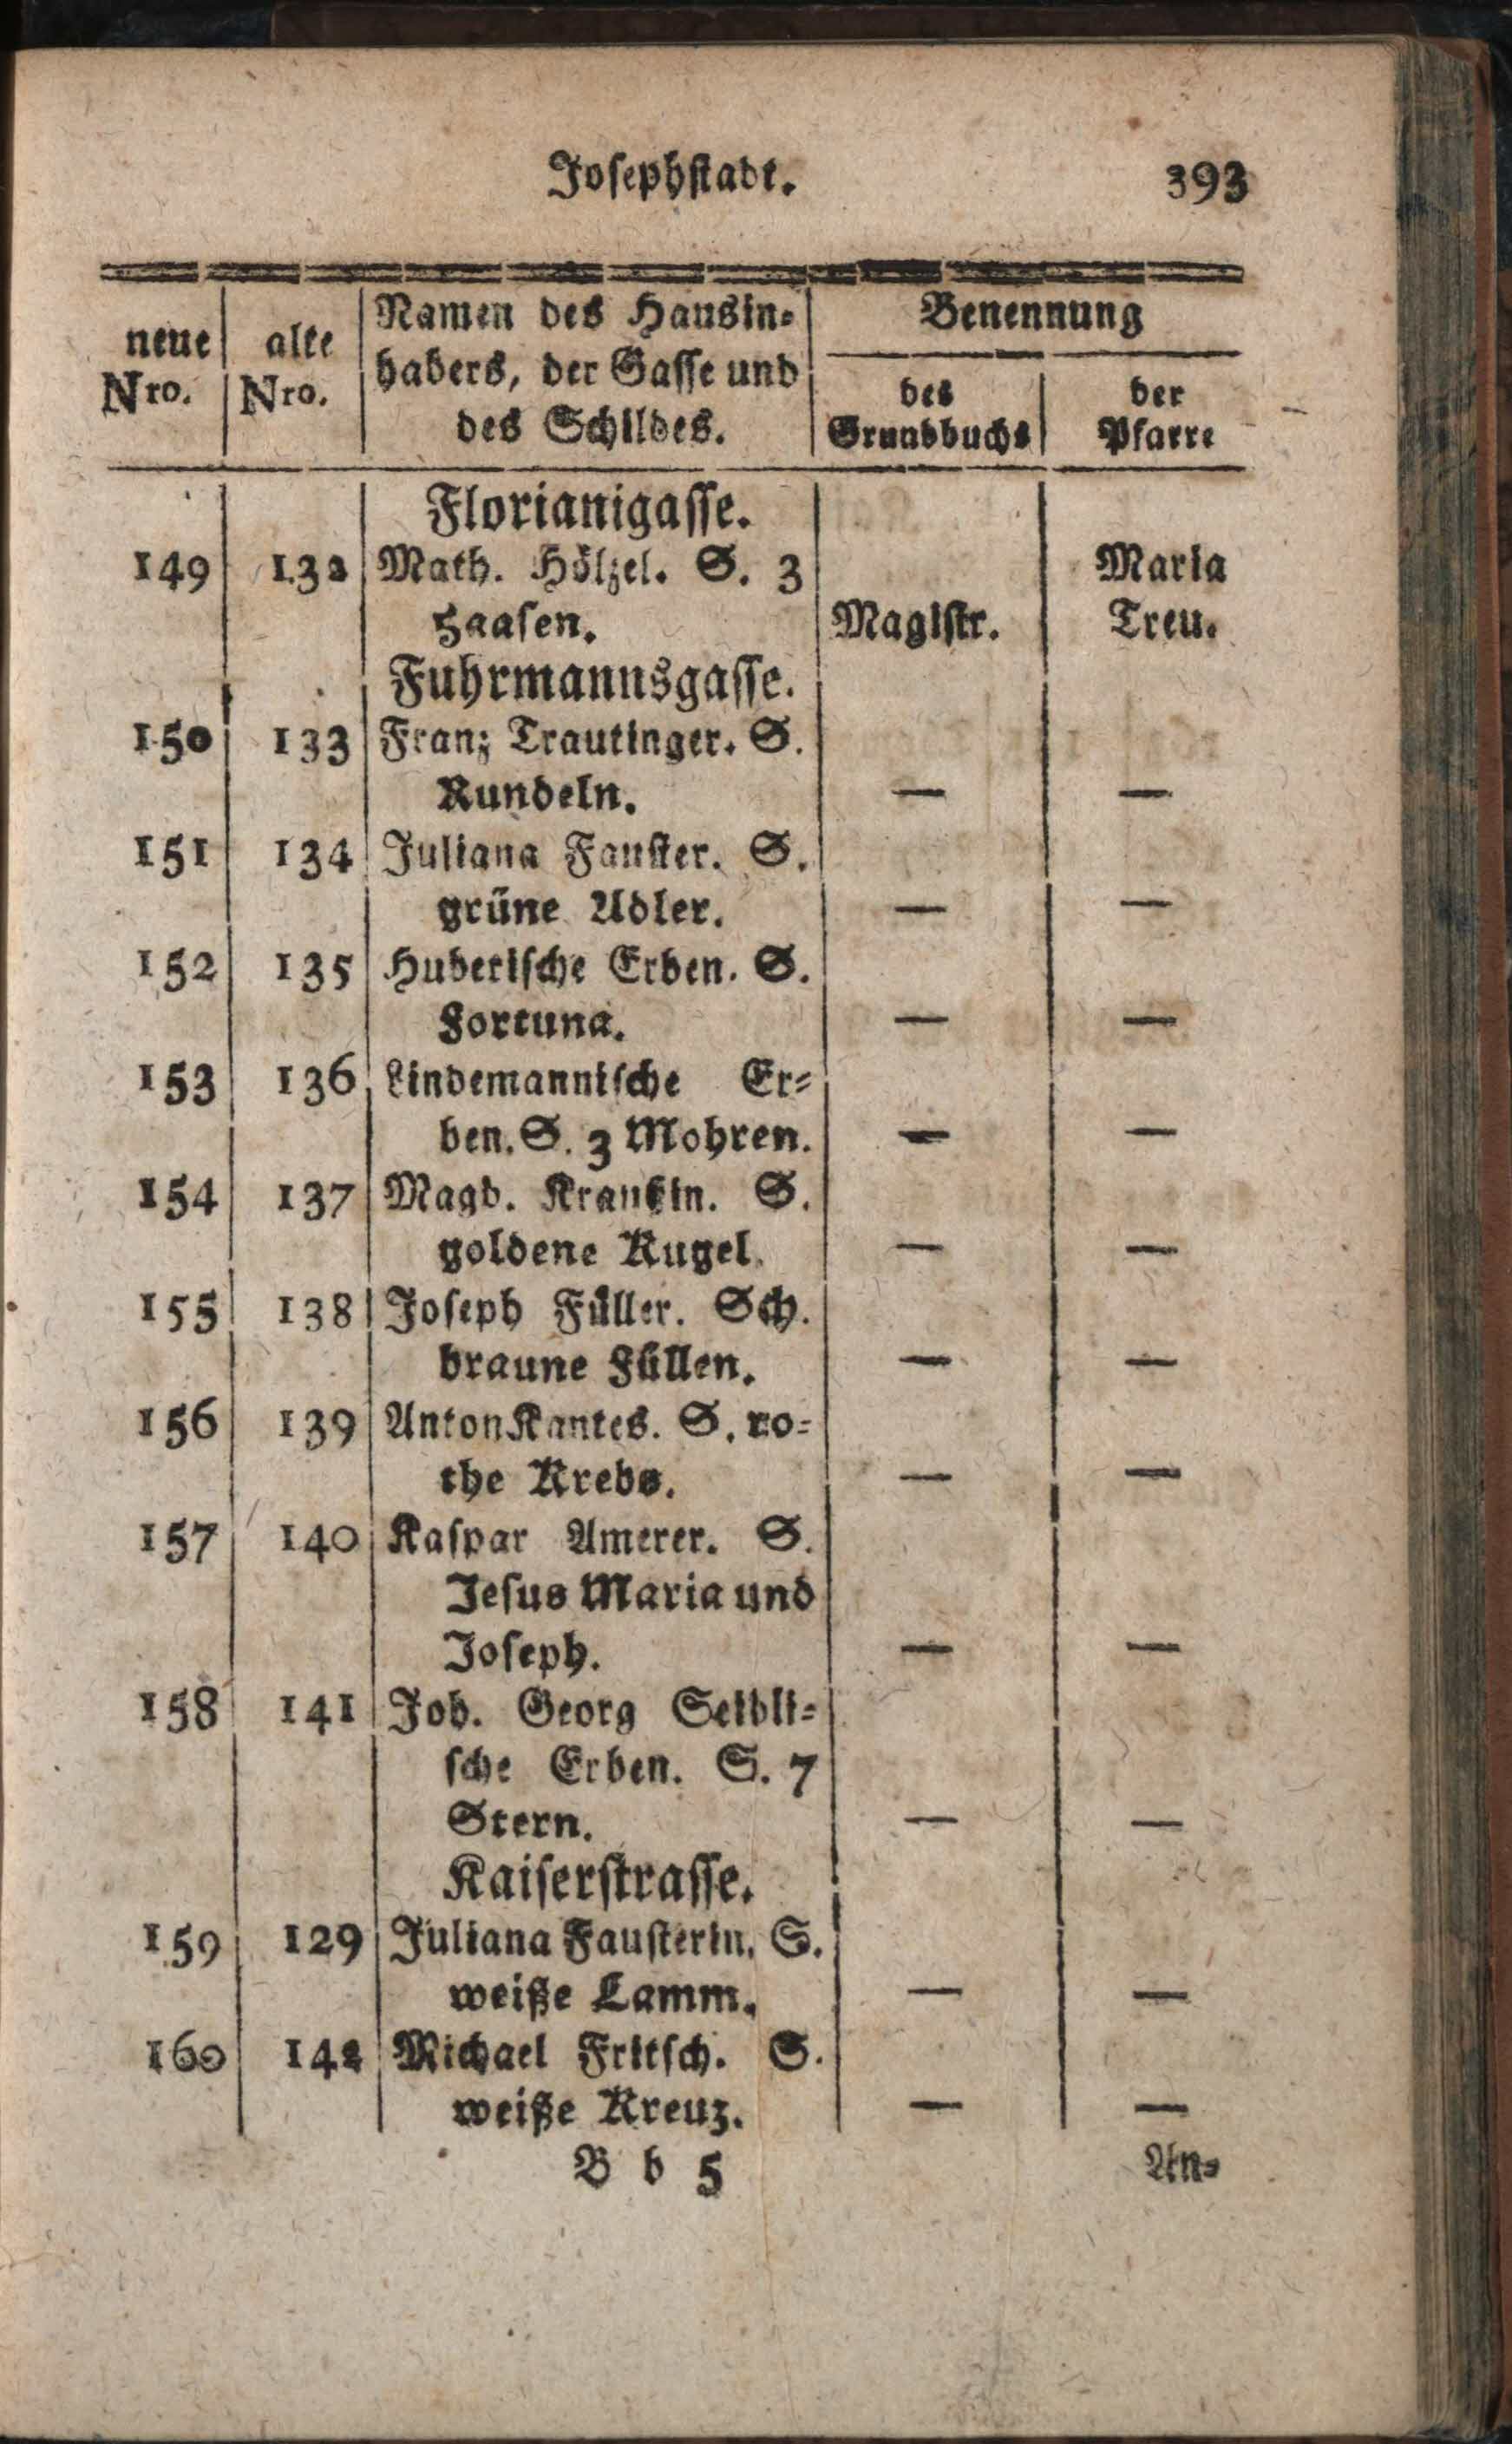 Josephstadt. 393
neue Nro. | alte Nro. | Namen des Hausin-
habers, der Gasse und
des Schildes. | Benennung
des Grundbuchs | der Pfarre
Florianigasse.
149 132 Math. Hölzel. S. 3 Maria
Haasen. Magistr. Treu.
Fuhrmannsgasse.
150 133 Franz Trautinger. S.
Rundeln. — —
151 134 Juliana Fauster. S.
grüne Adler. — —
152 135 Huberische Erben. S.
Fortuna. — —
153 136 Lindemannische Er-
ben. S. 3 Mohren. — —
154 137 Magd. S.
goldene Kugel. — —
155 138 Joseph Füller. Sch.
braune Füllen. — —
156 139 Anton Kantes. S. ro-
the Krebs. — —
157 140 Kaspar Amerer. S.
Jesus Maria und
Joseph. — —
158 141 Joh. Georg Seidli-
sche Erben. S. 7
Stern. — —
Kaiserstrasse.
159 129 Juliana Fausterin. S.
weiße Lamm. — —
160 142 Michael Fritsch. S.
weiße Kreuz. — —
B b 5 An-